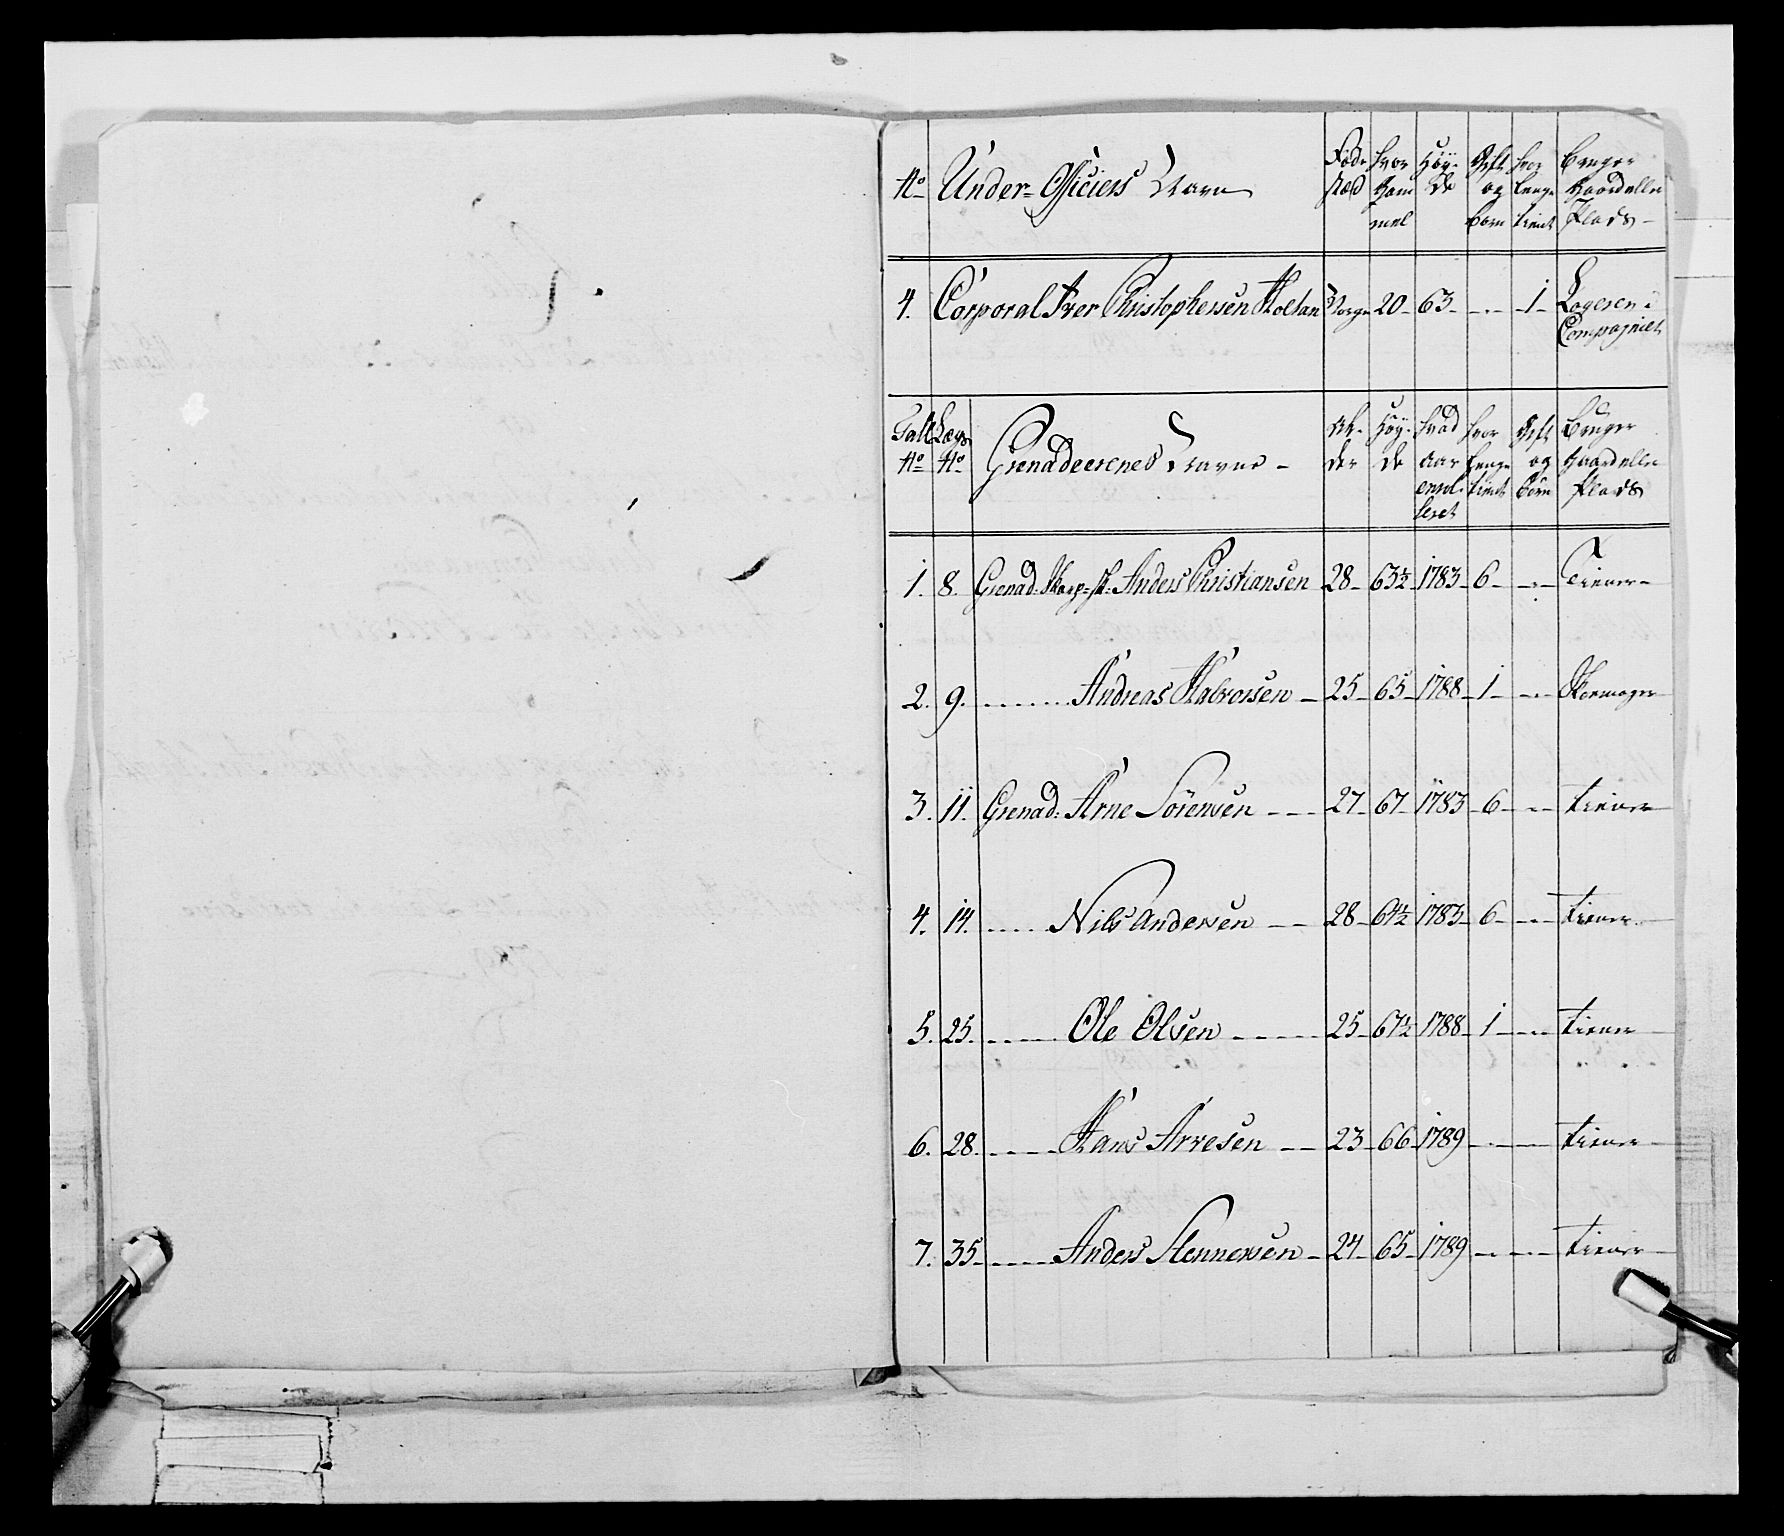 No Under-Officiers Navn Føde stæd hvor gam mel Høy- de Gift og børn hvor lenge tient Bruger Gaard eller Plads
4. Corporal Iver Christophersen Holtan Norge 20 63 - 1 Logeren i Compagniet
Tall No Lægs No Grenadeerenes Navne Al- der Høy- de hvad aar enrol- leret hvor lenge tient Gift og børn Bruger Gaard eller Plads
1. 8. Grenad: Skarp-sk: Anders Christiansen 28 63½ 1783 6 - Tiener
2. 9. Andreas Halvorsen 25 65 1788 1 - Skomager
3. 11. Grenad: Arne Sörensen 27 67 1783 6 - tiener
4. 14. Nils Andersen 28 64½ 1783 6 - tiener
5. 25. Ole Olsen 25 67½ 1788 1 - tiener
6. 28. Hans Arvesen 23 66 1789 - tiener
7. 35. Anders Stennersen 24 65 1789 - tiener